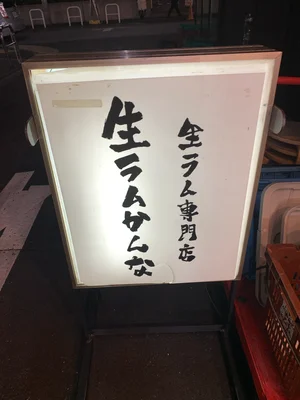 生ラム専門店
生ラムかんな